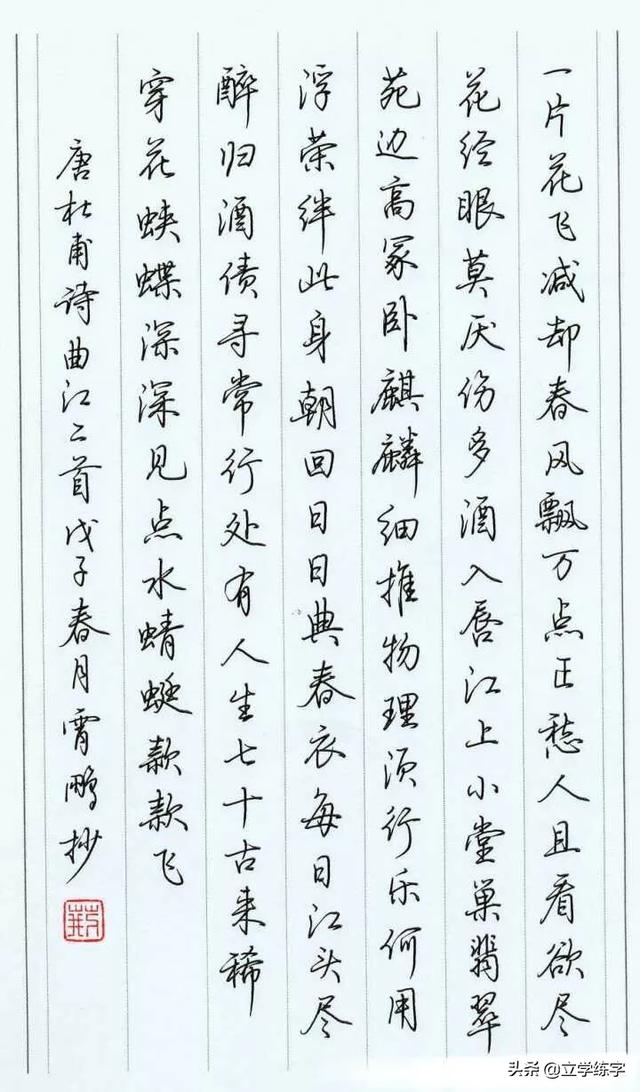 一片花飞减却春风飘万点正愁人且看欲尽
花经眼莫厌伤多酒入唇江上小堂巢翡翠
苑边高冢卧麒麟细推物理须行乐何用
浮荣绊此身朝回日日典春衣每日江头尽
醉归酒债寻常行处有人生七十古来稀
穿花蛱蝶深深见点水蜻蜓款款飞
唐杜甫诗曲江二首戊子春月霄鹏抄
头条 @立学练字